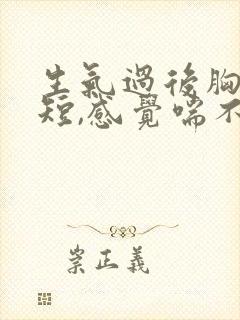 生氣過後胸
短,感覺喘不
崇正義